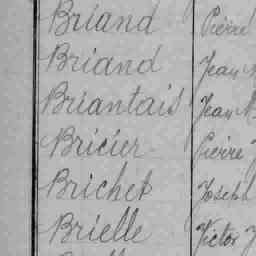 Briand Pierre
Briand Jean
Briantais Jean M
Bricier Pierre J
Brichet Joseph
Brielle Victor J